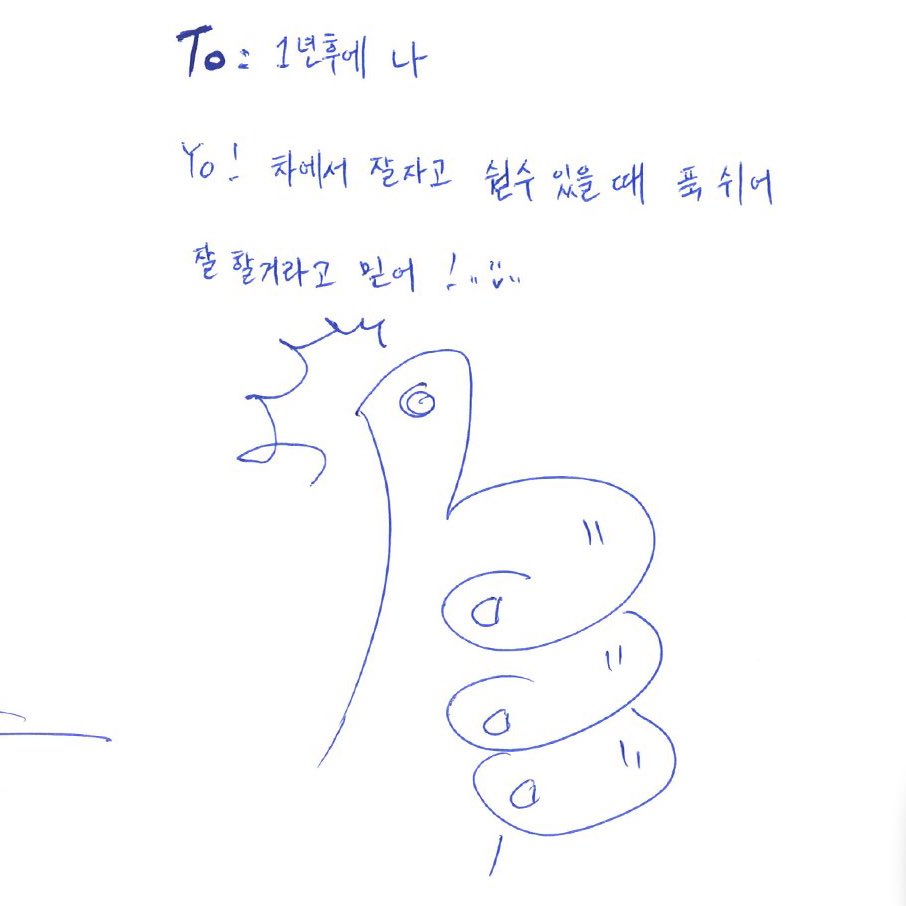 To: 1년후에 나
Yo! 차에서 잘자고 쉴수 있을 때 푹 쉬어
잘 할거라고 믿어 !